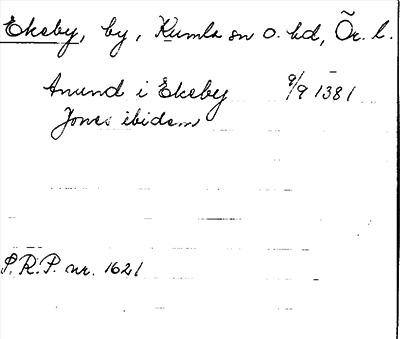 Ekeby, by, Kumla sn o. hd, Ör. l.
Anund i Ekeby 9/9 1381
Jones ibidem
S.R.P. nr. 1621